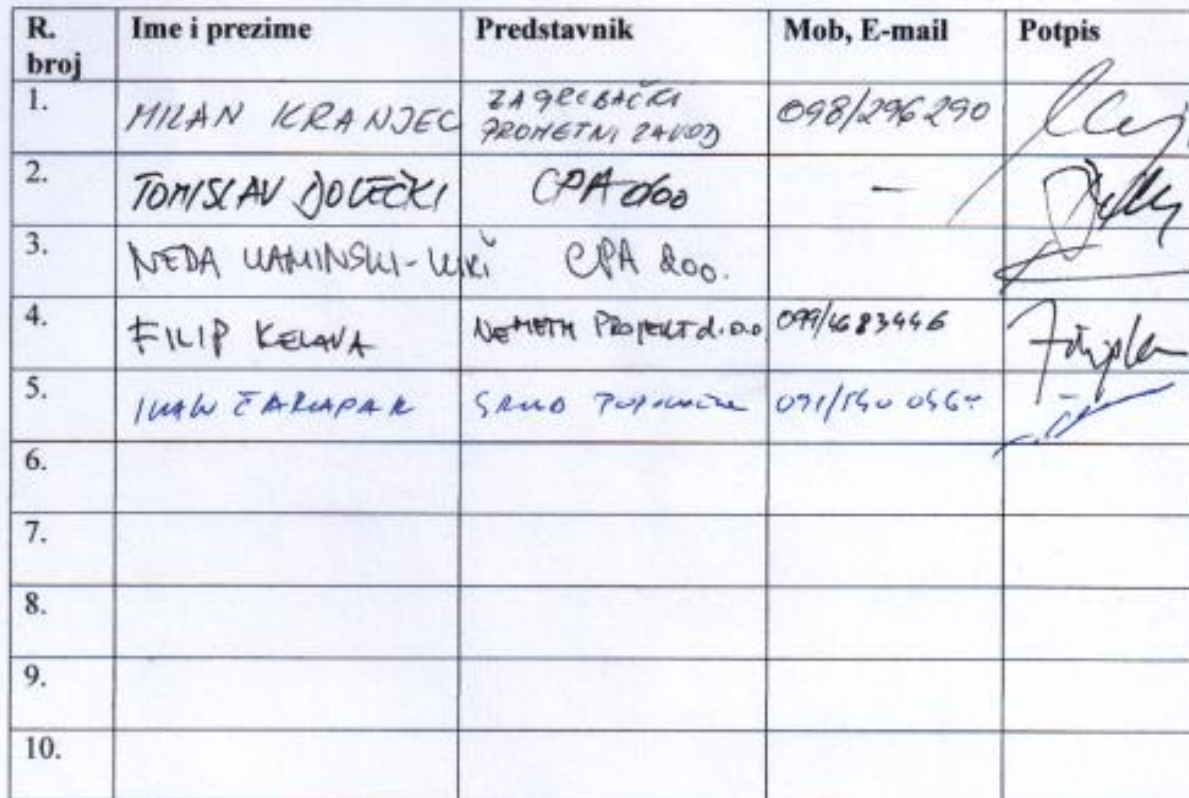 R. broj Ime i prezime Predstavnik Mob, E-mail Potpis
1. MILAN KRANJEC ZAGREBAČKI PROMETNI ZAVOD 098/296 290
2. TOMISLAV DOLEČKI CPA doo -
3. NEDA KAMINSKI-KIRŠ CPA doo.
4. FILIP KELAVA NEMETH PROJEKT d.o.o 099/4683446
5. IVAN GRAD
6.
7.
8.
9.
10.